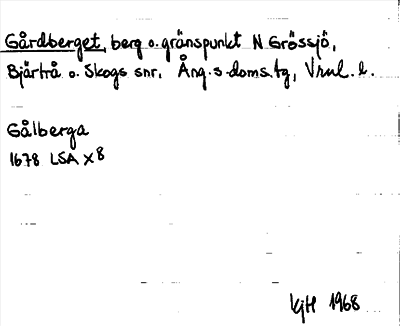 Gårdberget, berg o. gränspunkt N Grössjö,
Bjärtrå o. Skogs snr, Ång. s. doms.tg, Vnul. l.
Gålberga
1678 LSA X8
KjH 1968